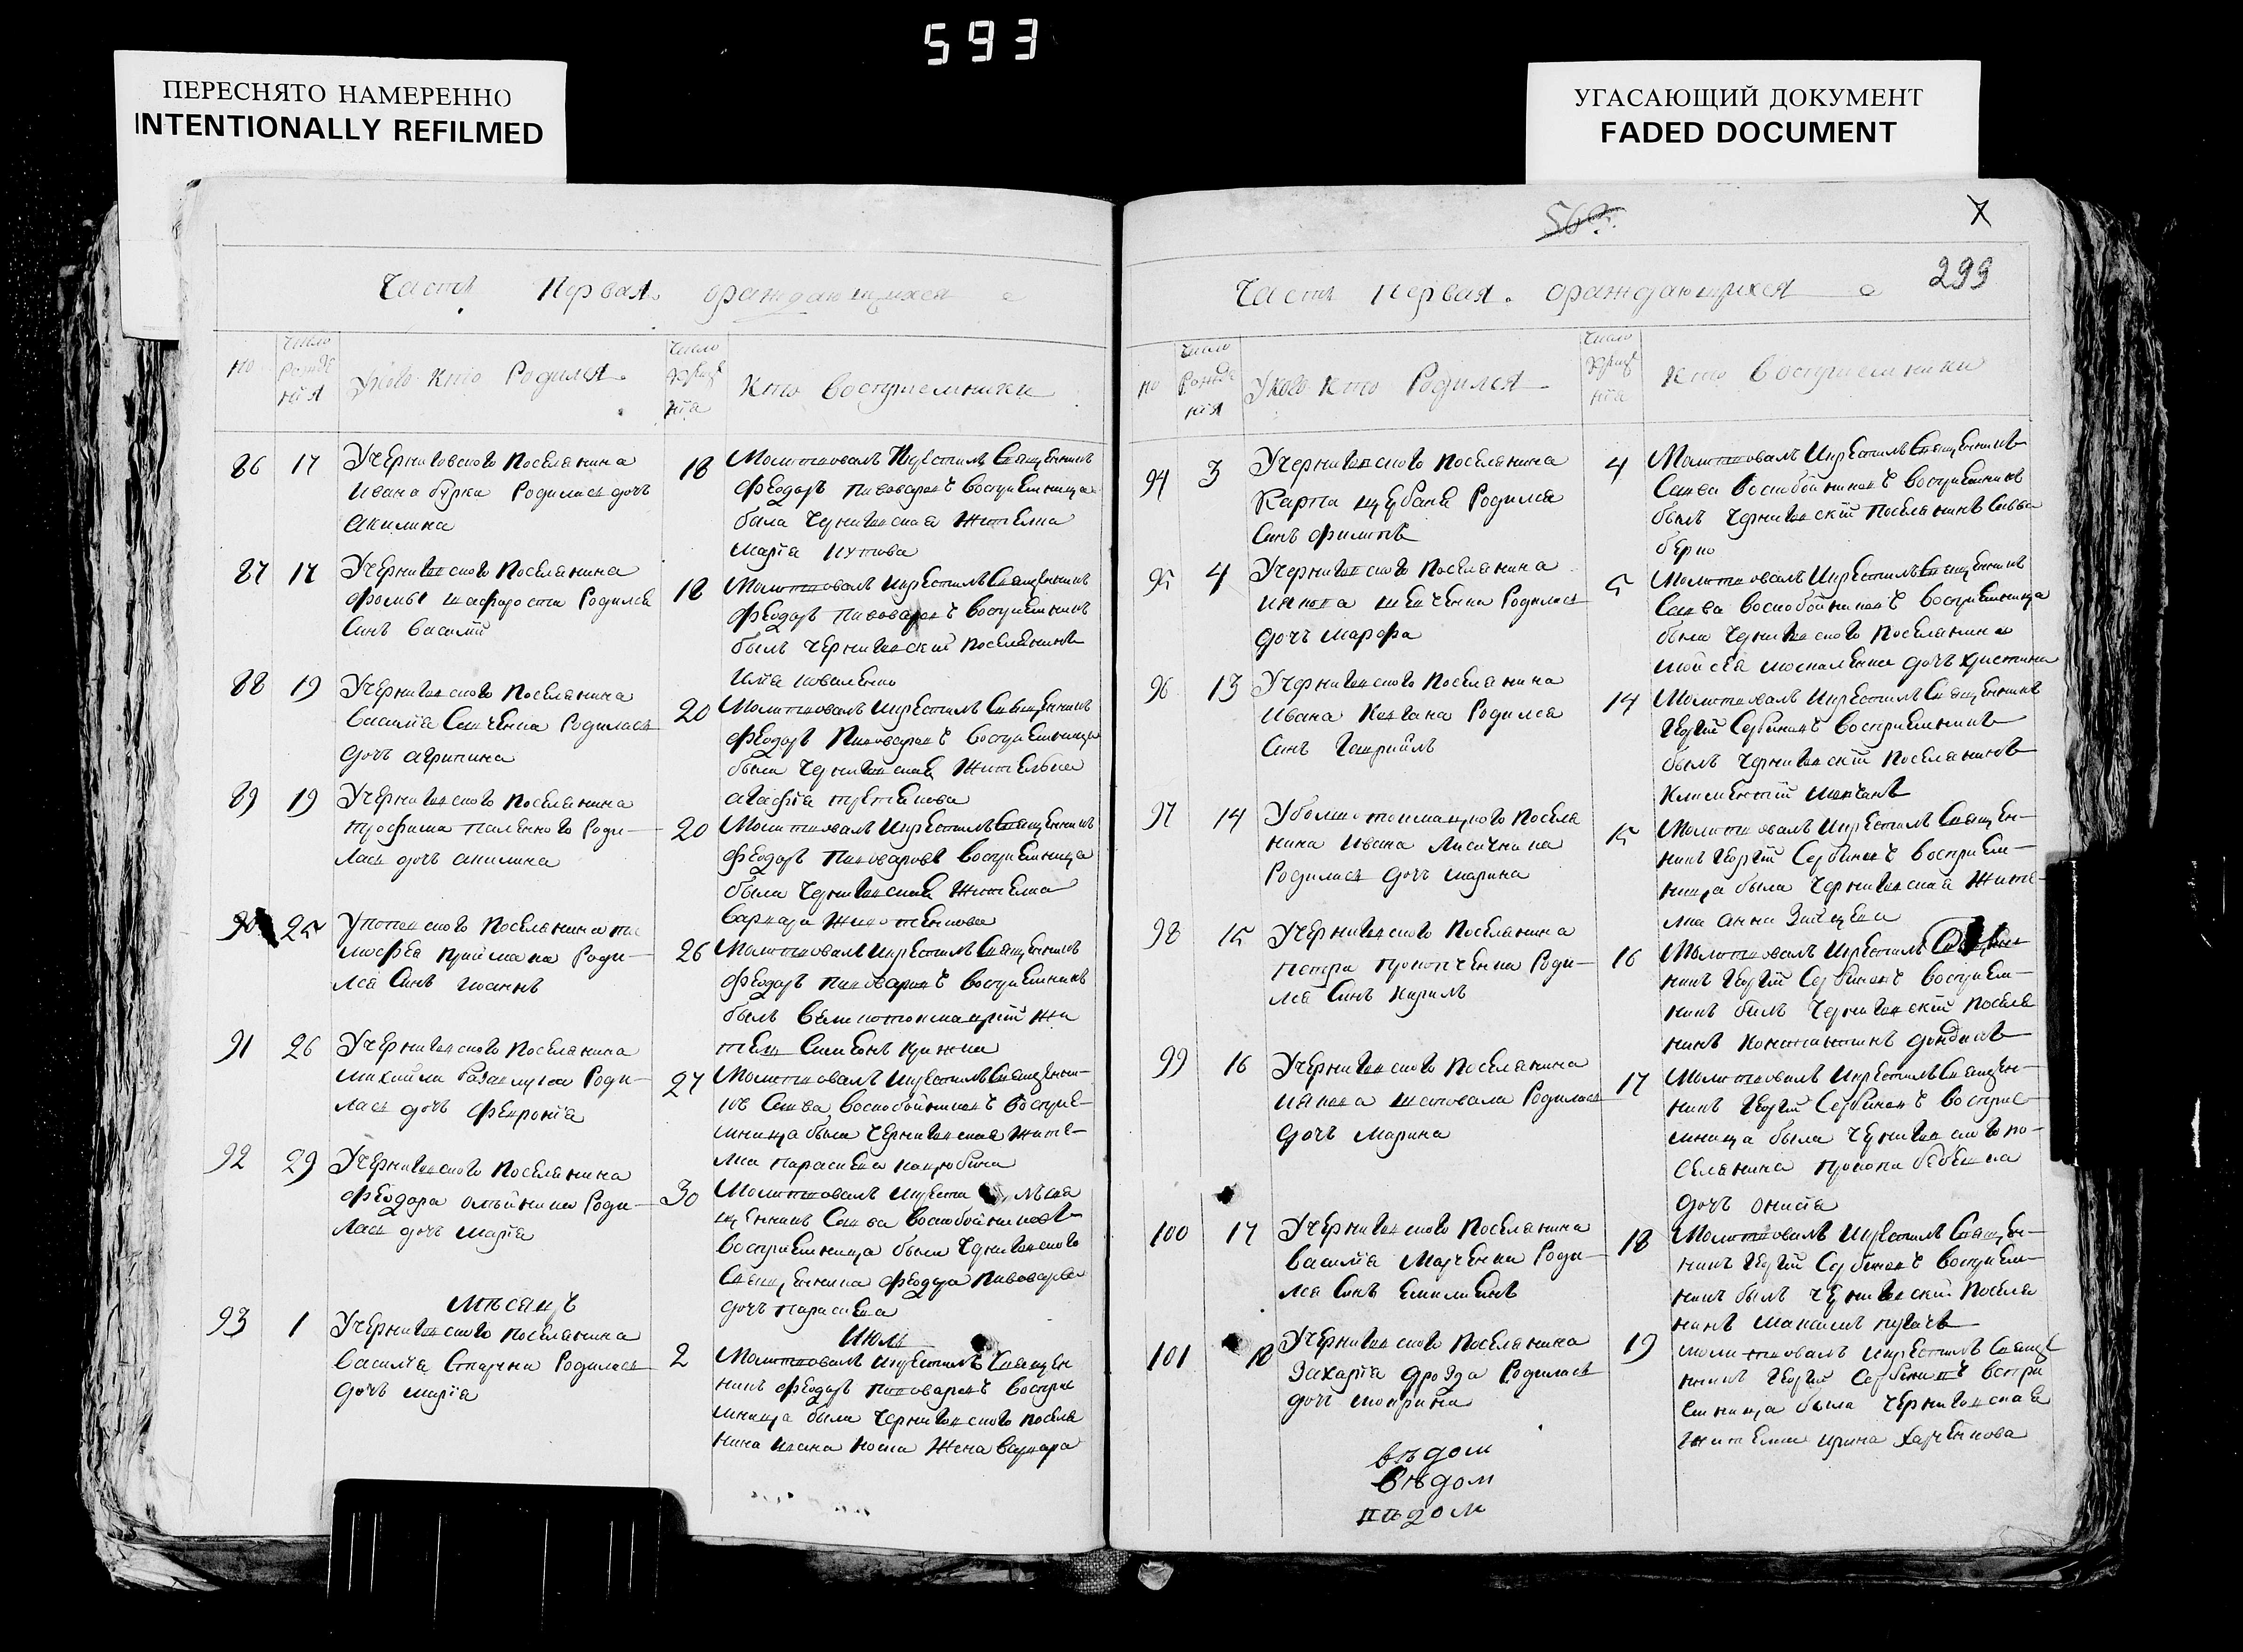 593
ПЕРЕСНЯТО НАМЕРЕННО
INTENTIONALLY REFILMED
УГАСАЮЩИЙ ДОКУМЕНТ
FADED DOCUMENT
Часть Первая. ораждающихся
но
число рожде нія
Укого кто Родился.
число крище нія
Кто восприемники
86 17
Учерниговского поселянина
Ивана бурки Родилась дочь
Акилина
18
Молитвовалъ Икрестилъ Священникъ
Феодоръ пивоваровъ восприемница
была Черниговская жителка
Марія
87 17
Учерниговского поселянина
Фомы шафорости Родился
Синъ василій
18
Молитвовалъ икрестилъ Священникъ
Феодоръ пивоваровъ восприемникъ
былъ черниговскій поселянинъ
Илія коваленко
88 19
Учерниговского поселянина
василія Савченка Родилась
дочь агрипина
20
Молитвовалъ икрестилъ Священникъ
Феодоръ Пивоваровъ восприемница
была Черниговская жителька
агафія
89 19
Учерниговского поселянина
трофима паленого Роди-
лась дочь акилина
20
Молитвовалъ икрестилъ Священникъ
Феодоръ пивоваровъ восприемница
была Черниговская жителка
варвара
90 25
Упоповского поселянина ти
мофея приймака Роди-
лся Синъ Иоаннъ
26
Молитвовалъ икрестилъ Священникъ
Феодоръ пивоваровъ восприемникъ
былъ великотокмацкій жи
тель Симеонъ крижка
91 26
Учерниговского поселянина
михаила Роди-
лась дочь Февронія
27
Молитвовалъ икрестилъ Священни-
къ Савва воскобойниковъ восприе-
мница была черниговская жите-
лка параскева
92 29
Учерниговского поселянина
Феодора олейника Роди-
лась дочь марія
30
Молитвовалъ икрести лъ свя
щенникъ Савва воскобойниковъ
восприемница была Черниговского
Священника феодора Пивоварова
дочь параскева
Мѣсяцъ
Июль
93 1
Учерниговского поселянина
василія Родилась
дочь марія
2
Молитвовалъ икрестилъ Священ
никъ феодоръ пивоваровъ восприе
мница была черниговского поселя
нина ивана носа жена варвара
299
Часть Первая. ораждающихся
но
число рожде нія
Укого кто Родился
число крище нія
кто восприемники
94 3
Учерниговского поселянина
Карпа цубаня Родился
Синъ филипъ
4
Молитвовалъ икрестилъ Священникъ
Савва воскобойниковъ восприемникъ
былъ черниговскій поселянинъ савва
берко
95 4
Учерниговского поселянина
Иакова шевченка Родилась
дочь марфа
5
Молитвовалъ икрестилъ Священникъ
Савва воскобойниковъ восприемница
была черниговского поселянина
мойсея москаленка дочь христина
96 13
Учерниговского поселянина
Ивана Родился
Синъ гавриилъ
14
Молитвовалъ икрестилъ Священникъ
георгій Сербиновъ восприемникъ
былъ черниговскій поселянинъ
климентій мовчанъ
97 14
Уболшотокмацкого поселя
нина Ивана Лисички на
Родилась дочь марина
15
Молитвовалъ икрестилъ Священ-
никъ георгій Сербиновъ восприем-
ница была черниговская жите-
лка анна
98 15
Учерниговского поселянина
петра прокопченка Роди-
лся Синъ кирилъ
16
Молитвовалъ икрестилъ Священ
никъ георгій Сербиновъ восприем-
никъ былъ черниговскій поселя
нинъ константинъ
99 16
Учерниговского поселянина
иакова шаповала Родилась
дочь марина
17
Молитвовалъ икрестилъ Священ-
никъ георгій Сербиновъ восприе-
мница была черниговского по-
селянина
дочь онисія
100 17
Учерниговского поселянина
василія марченка Роди-
лся Синъ емилианъ
18
Молитвовалъ икрестилъ Священ-
никъ георгій Сербиновъ восприем-
никъ былъ черниговскій поселя
нинъ максимъ пугачъ
101 18
Учерниговского поселянина
Захарія дрозда Родилась
дочь мокрина
19
молитвовалъ икрестилъ Священ
никъ георгій Сербиновъ воспри
емница была черниговская
жителка ирина харченкова
вѣдом
вѣдом